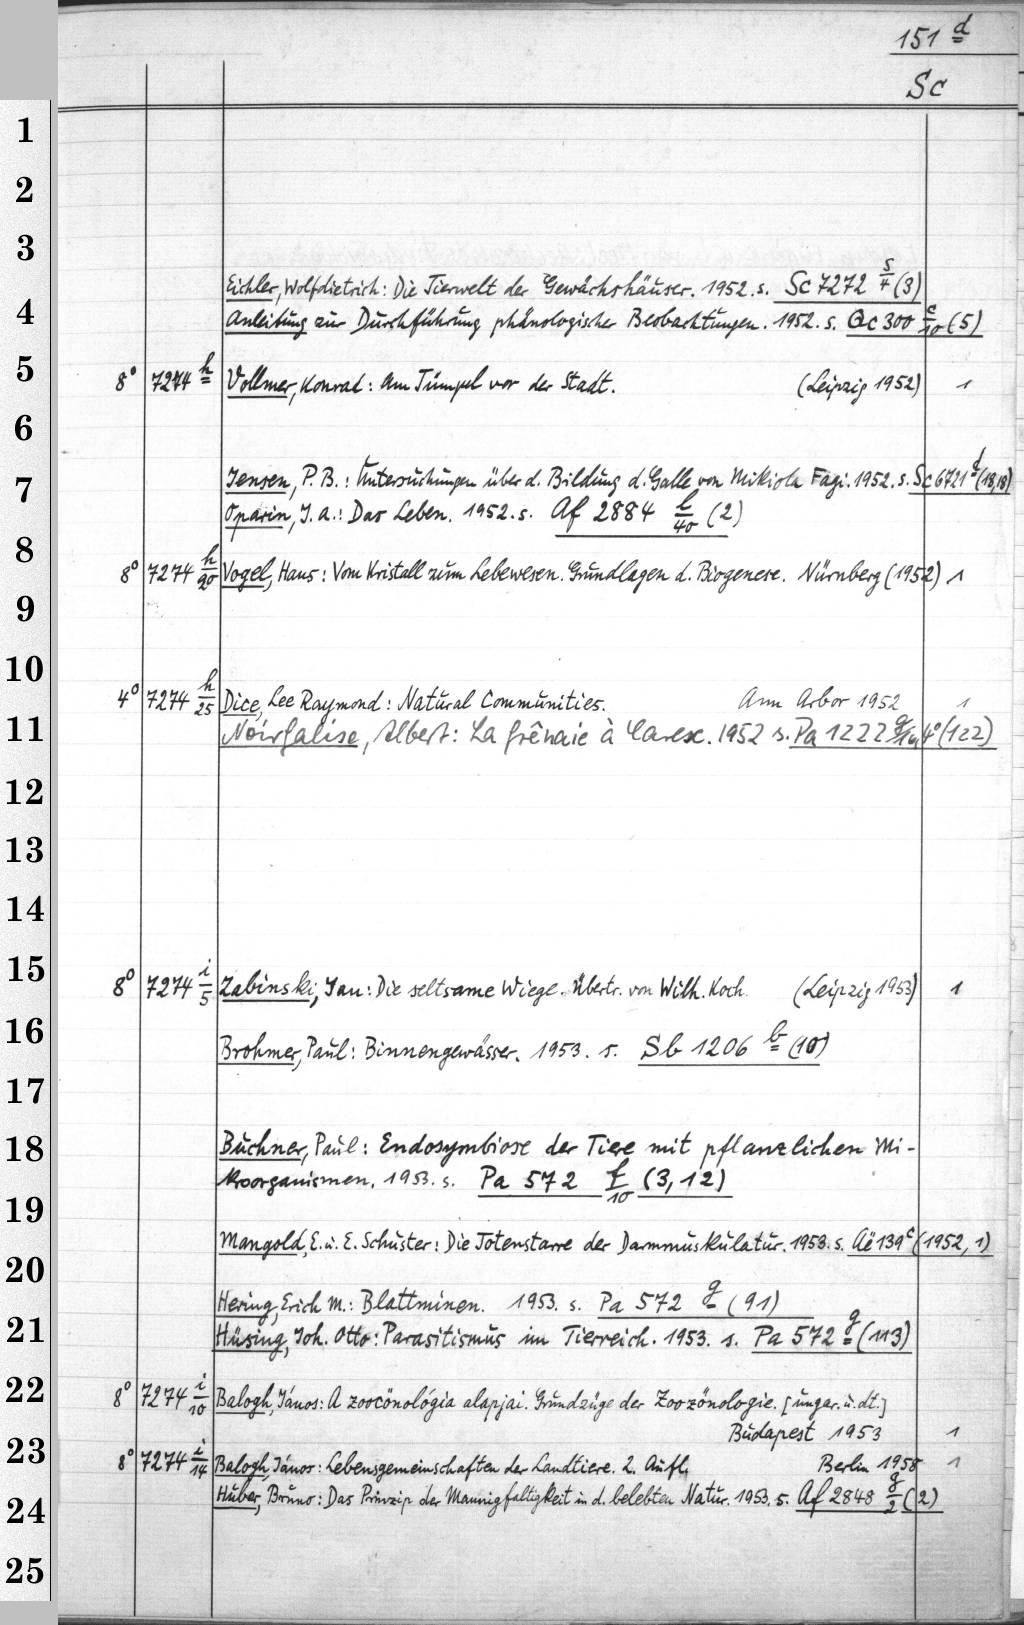 151 d
Sc
1
2
3
Eichler, Wolfdietrich: Die Tierwelt der Gewächshäuser. 1952. s. Sc 7272 s/4 (3)
4
Anleitung zur Durchführung phänologischer Beobachtungen. 1952. s. Qc 300 c/10 (5)
5
8° 7274 h Vollmer, Konrad: Am Tümpel vor der Stadt. (Leipzig 1952) 1
6
7
Jensen, P. B.: Untersuchungen über d. Bildung d. Galle von Mikiola Fagi. 1952. s. Sc 6721 d (18,18)
Oparin, J. A.: Das Leben. 1952. s. Af 2884 l/40 (2)
8
8° 7274 h/20 Vogel, Hans: Vom Kristall zum Lebewesen. Grundlagen d. Biogenese. Nürnberg (1952) 1
9
10
4° 7274 h/25 Dice, Lee Raymond: Natural Communities. Ann Arbor 1952 1
11
Noirfalise, Albert: La frênaie à Carex. 1952 s. Pa 1222 4° (122)
12
13
14
15
8° 7274 i/5 Zabinski, Jan: Die seltsame Wiege. Übertr. von Wilh. Koch. (Leipzig 1953) 1
16
Brohmer, Paul: Binnengewässer. 1953. s. Sb 1206 b (10)
17
18
Buchner, Paul: Endosymbiose der Tiere mit pflanzlichen Mi-
kroorganismen. 1953. s. Pa 572 f/10 (3, 12)
19
Mangold, E. u. E. Schuster: Die Totenstarre der Darmmuskulatur. 1953. s. Aë 139 c (1952, 1)
20
Hering, Erich M.: Blattminen. 1953. s. Pa 572 g (91)
21
Hüsing, Joh. Otto: Parasitismus im Tierreich. 1953. s. Pa 572 g (113)
22
8° 7274 i/10 Balogh, János: A zoocönológia alapjai. Grundzüge der Zoozönologie. [ungar. u. dt.]
Budapest 1953 1
23
8° 7274 i/14 Balogh, János: Lebensgemeinschaften der Landtiere. 2. Aufl. Berlin 1958 1
24
Huber, Bruno: Das Prinzip der Mannigfaltigkeit in d. belebten Natur. 1953. s. Af 2848 g/2 (2)
25